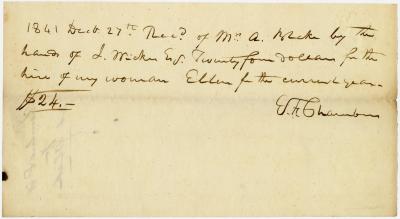 1841 Dect. 27th Recd of Mr. A. Blake by the
hands of J. Wickes Esq. Twenty four dollars for the
hire of my woman Ellen for the current year.
$24.—
E. F. Chambers